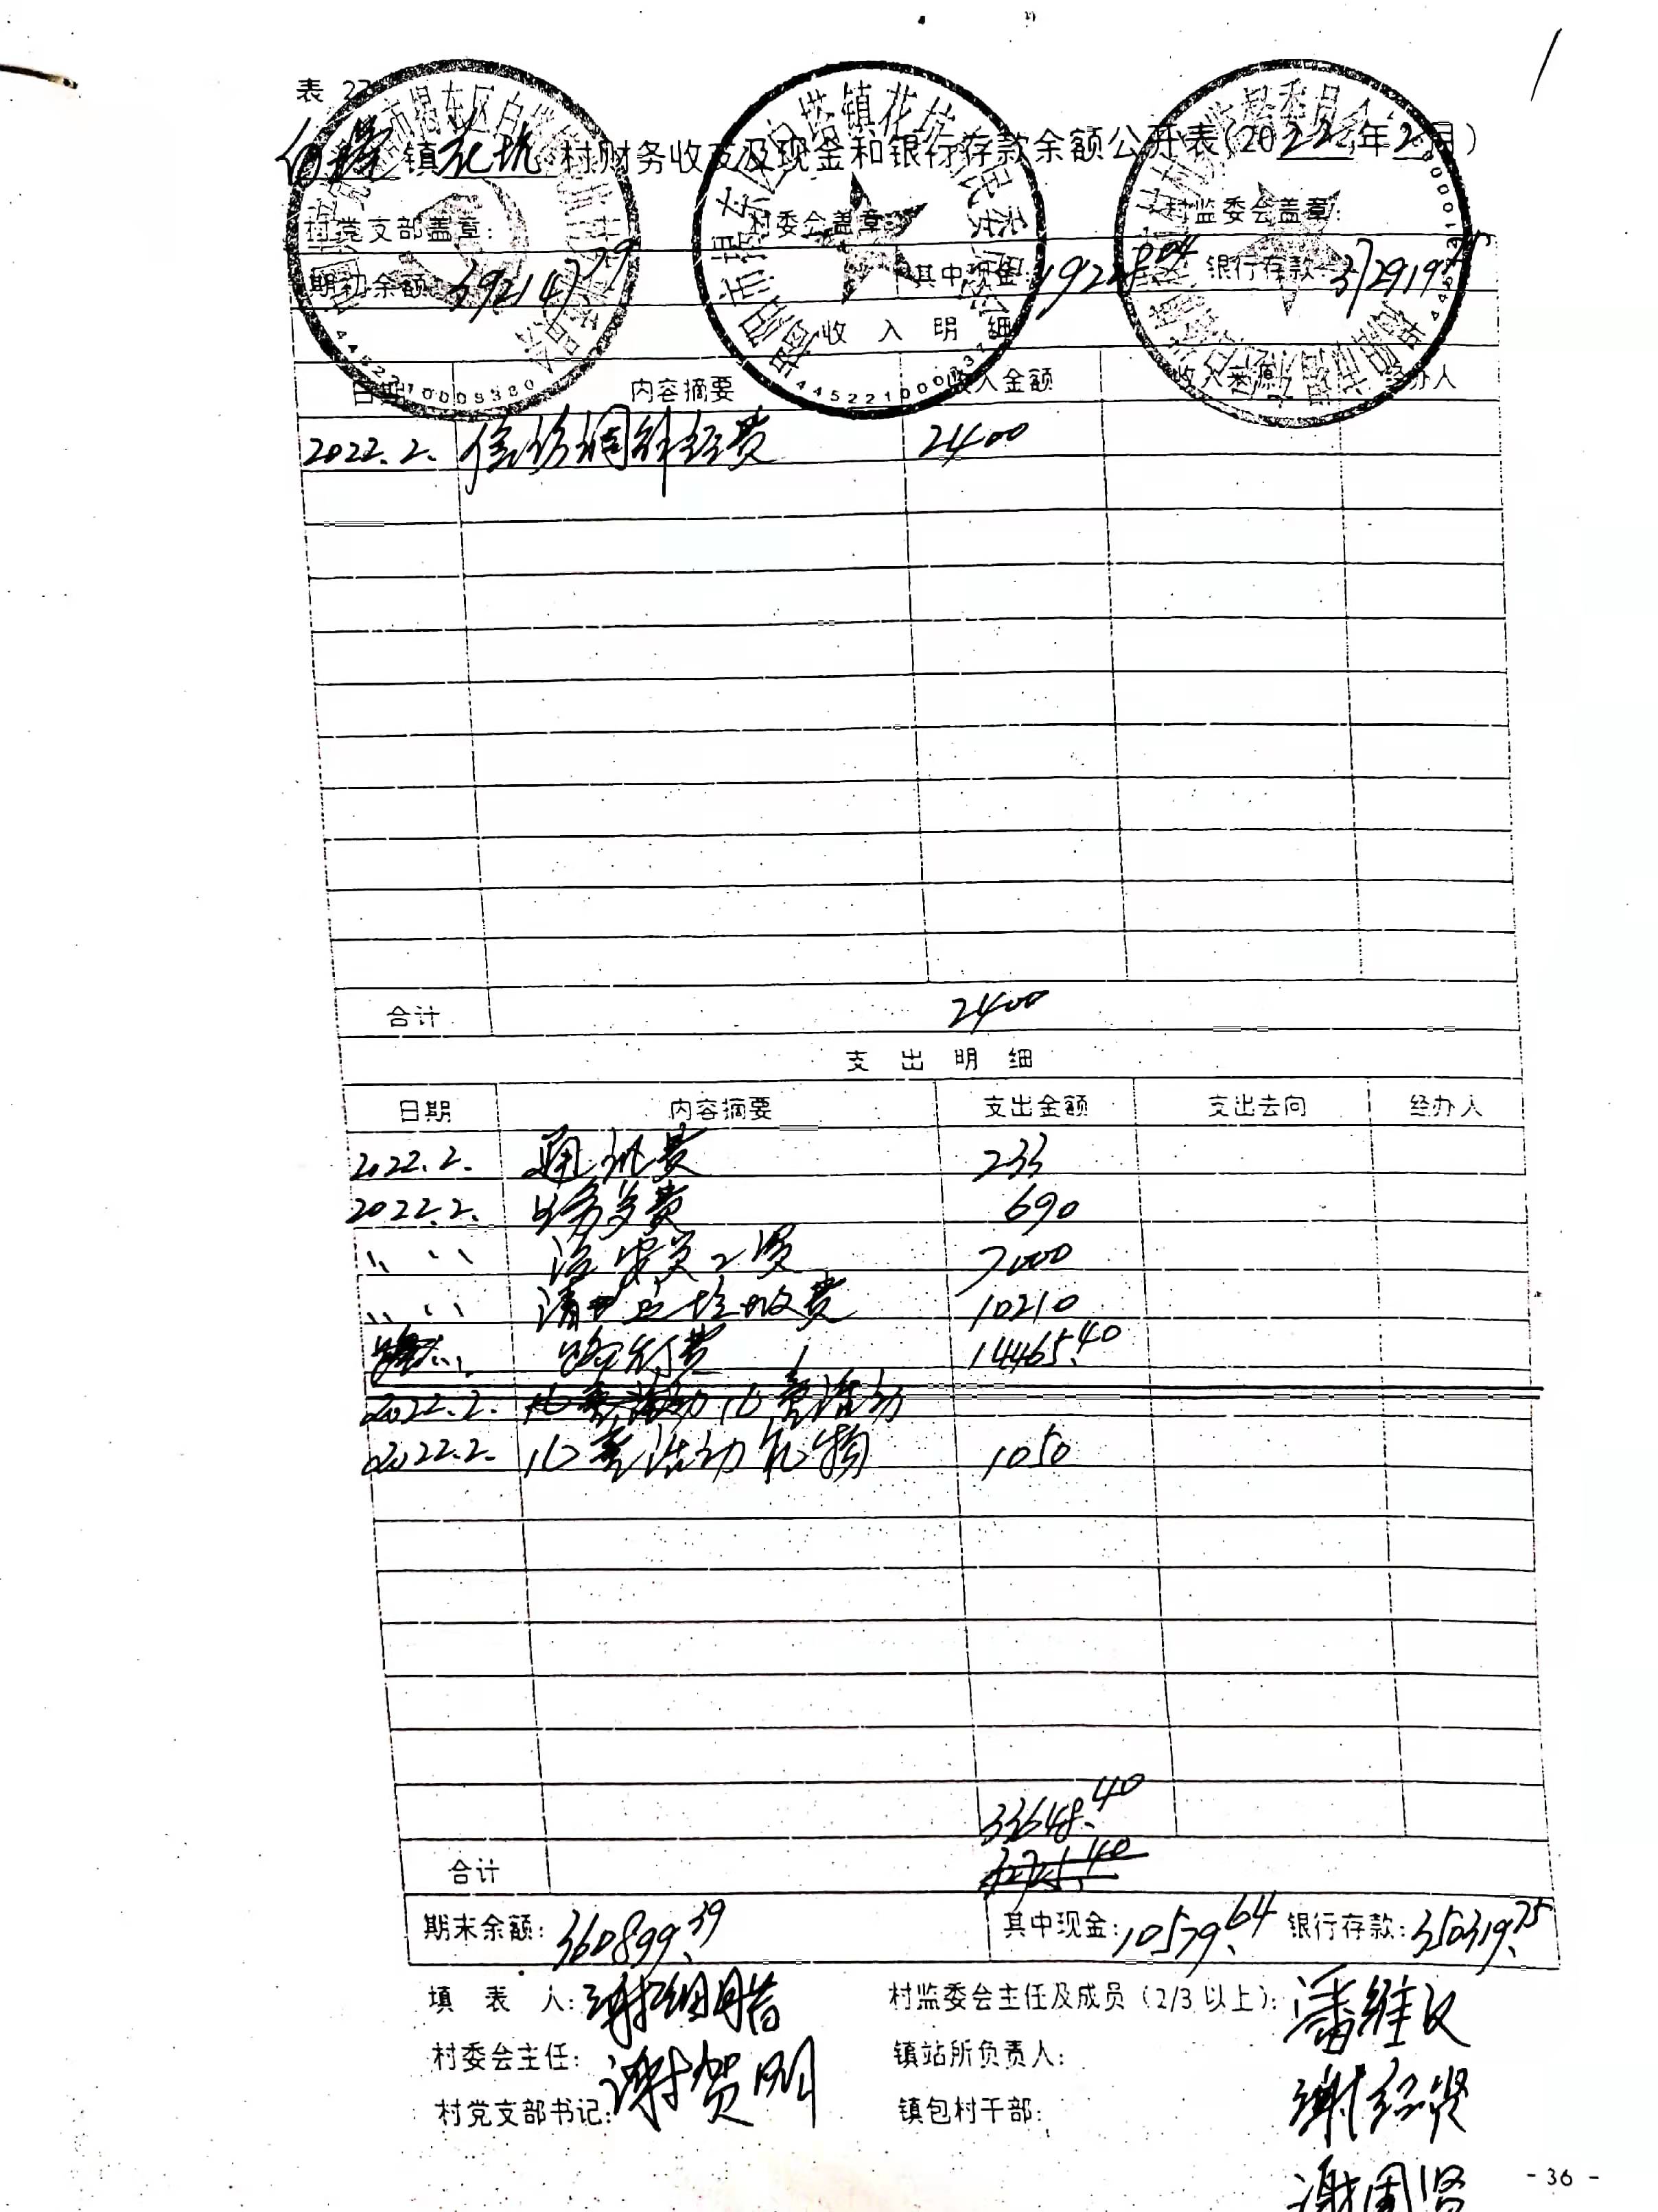 表 23
白塔镇花坑村财务收支及现金和银行存款余额公开表(2022年2月)
村党支部盖章: 村委会盖章: 村监委会盖章:
期初余额: 392147.79 其中现金: 19228.04 银行存款: 372919.75
收 入 明 细
日期 内容摘要 收入金额 收入来源 经办人
2022.2. 经费 2400
合计 2400
支 出 明 细
日期 内容摘要 支出金额 支出去向 经办人
2022.2. 通讯费 233
2022.2. 费 690
治安员工资 7000
清运垃圾费 10210
费 14465.40
2022.2. 活动
2022.2. 活动礼物 1050
33648.40
合计
期末余额: 360899.39 其中现金: 10579.64 银行存款: 350319.75
填 表 人: 村监委会主任及成员(2/3以上): 潘维汉
村委会主任: 谢贺明 镇站所负责人:
谢经贤
村党支部书记: 镇包村干部:
谢周贤
- 36 -